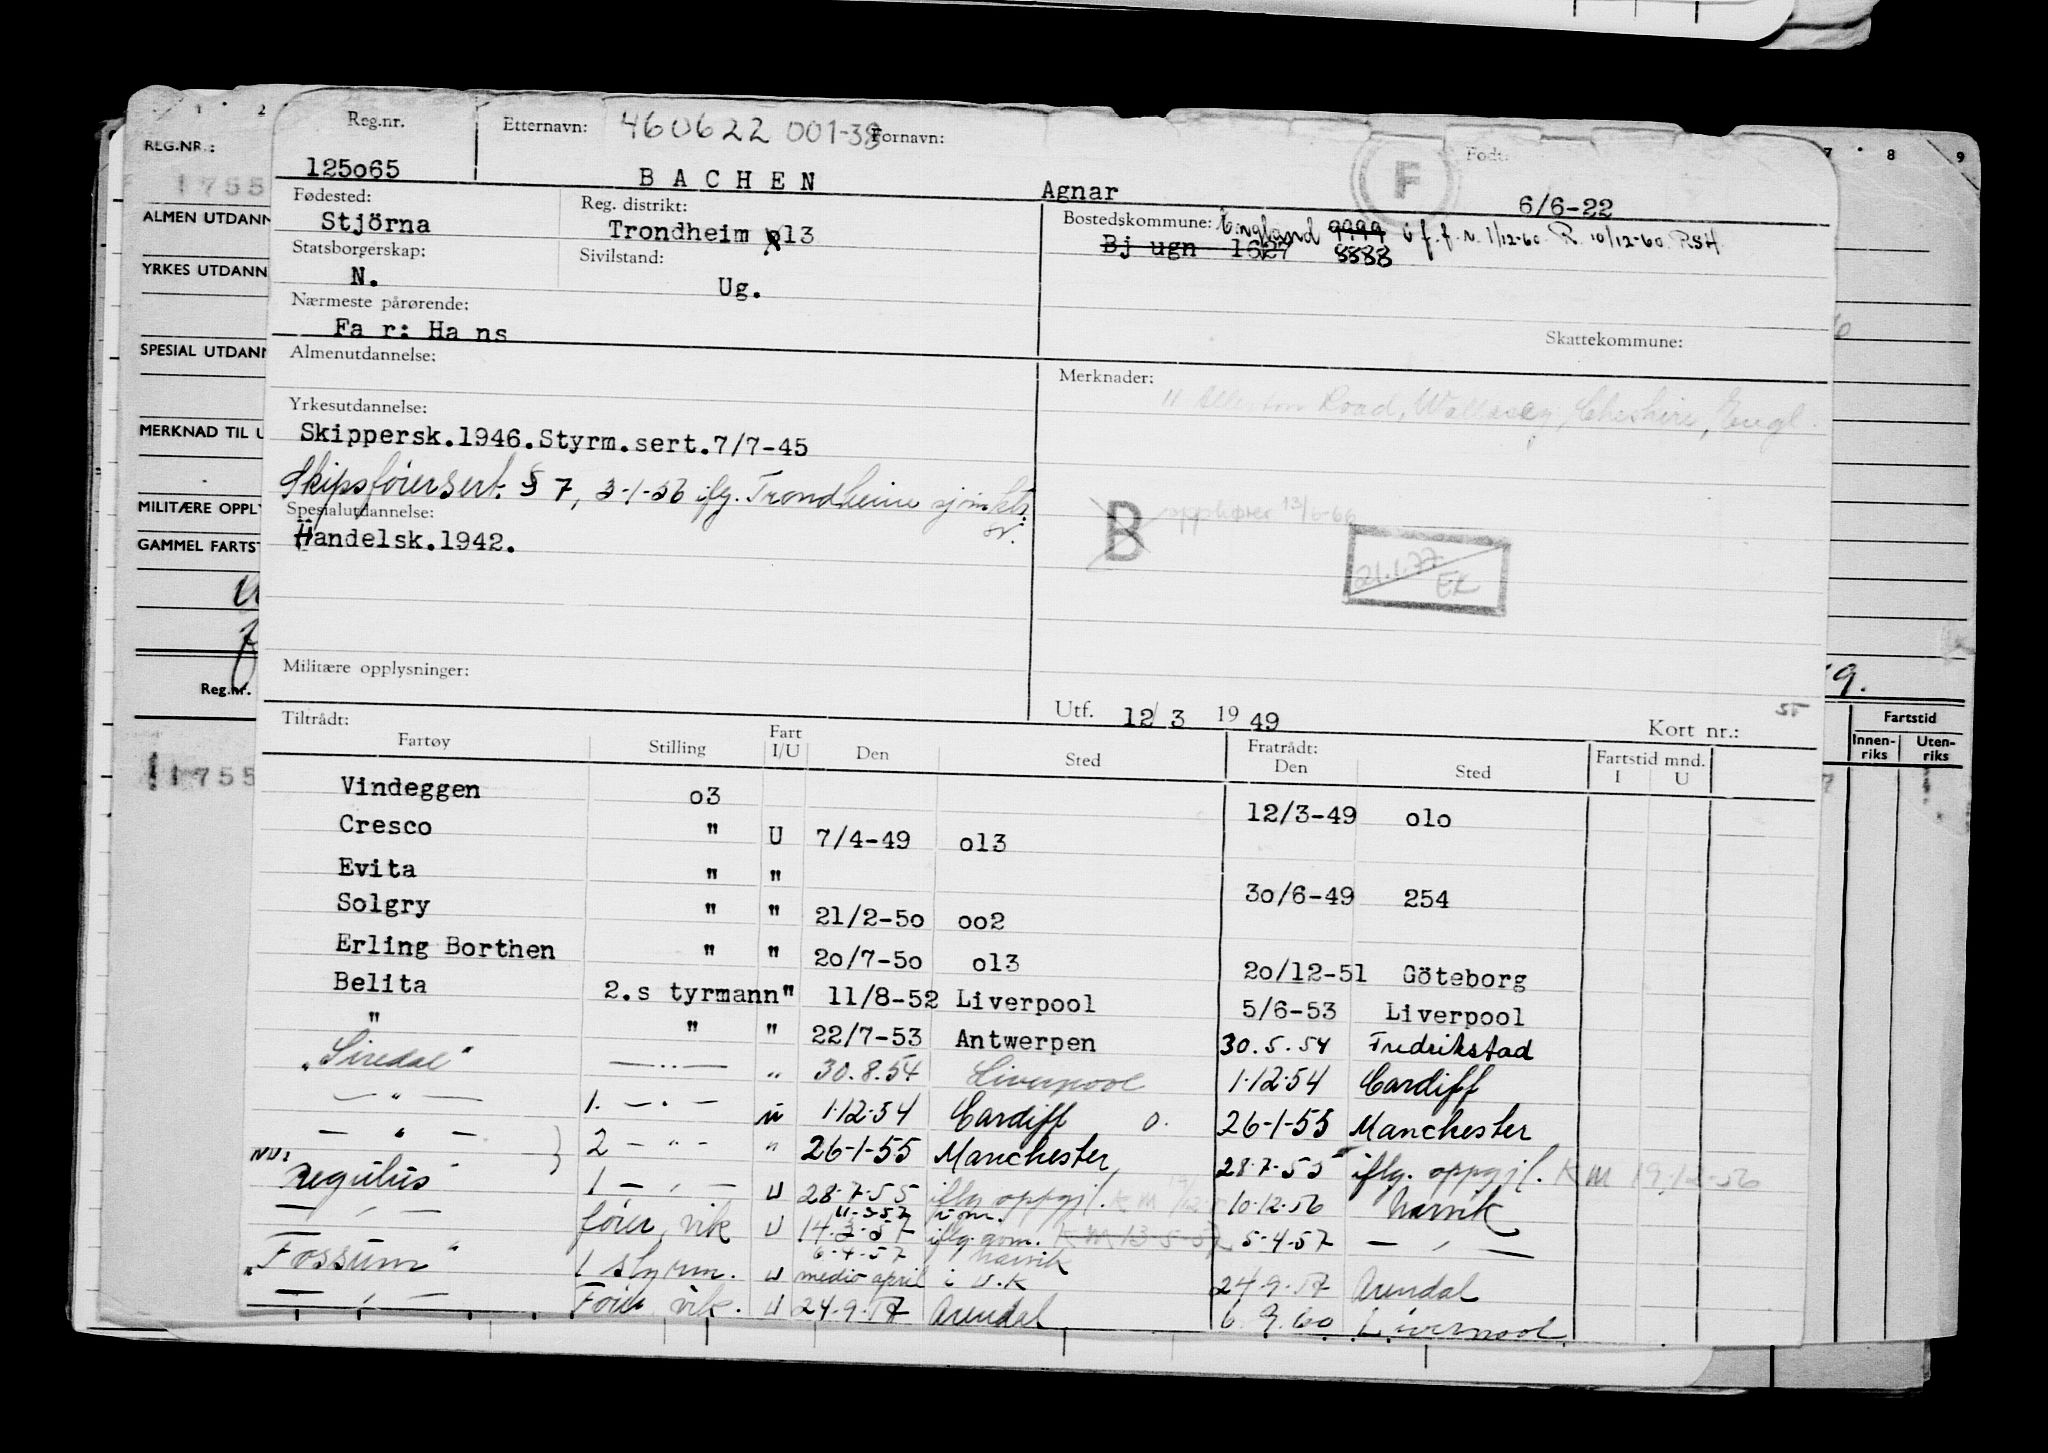 1 2 7 8 9
REG.NR.:
1755
ALMEN UTDANN
YRKES UTDANN
SPESIAL UTDANN
MERKNAD TIL U
MILITÆRE OPPLY
GAMMEL FARTST
Reg.nr.
11755
Reg.nr. Etternavn: 460622 001-38 Fornavn: Født:
125o65 B A C H E N Agnar F 6/6-22
Fødested: Reg. distrikt: Bostedskommune: England 9999 i f.f.n. 1/12-60. R. 10/12-60. RSH.
Stjörna Trondheim o13 Bj ugn 1627 8888
Statsborgerskap: Sivilstand:
N. Ug.
Nærmeste pårørende:
Fa r: Ha ns Skattekommune:
Almenutdannelse: Merknader:
Road, Wallasey, Cheshire, Engl.
Yrkesutdannelse:
Skippersk.1946.Styrm.sert.7/7-45
Skipsførersert. § 7, 3-1-56 iflg. Trondheim
Spesialutdannelse: B opphører 13/6-66
Handelsk.1942. 21.1.77 EK
Militære opplysninger:
Utf. 12/3 1949 Kort nr.:
Tiltrådt: Fratrådt: Fartstid mnd.
Fartøy Stilling Fart I/U Den Sted Den Sted I U
Fartstid
Innen- riks Uten- riks
Vindeggen o3 12/3-49 olo
Cresco " U 7/4-49 o13
Evita " " 30/6-49 254
Solgry " " 21/2-5o oo2
Erling Borthen " " 2o/7-5o o13 2o/12-51 Göteborg
Belita 2.s tyrmann" 11/8-52 Liverpool 5/6-53 Liverpool
" " " 22/7-53 Antwerpen 30.5.54 Fredrikstad
"Siredal" — .. — " 30.8.54 Liverpool 1.12.54 Cardiff
— " — 1. — . — u 1.12.54 Cardiff 0. 26-1-55 Manchester
— " — } 2 — " — " 26-1-55 Manchester, 28.7.55 iflg. oppgjl. KM 19.12-56
Regulus" 1 — , — U 28.7.55 iflg oppgjl. KM 10.12.56 Narvik
— , — fører, vik U 14.3.57 11-3-57 iflg. KM 13-5-57 5-4-57 — , —
"Fossum" 1 styrm. U 6-4-57 Narvik medio april i U.K 24.9.57 Arendal
— , — Fører vik. U 24.9.57 Arendal 6.9.60 Liverpool